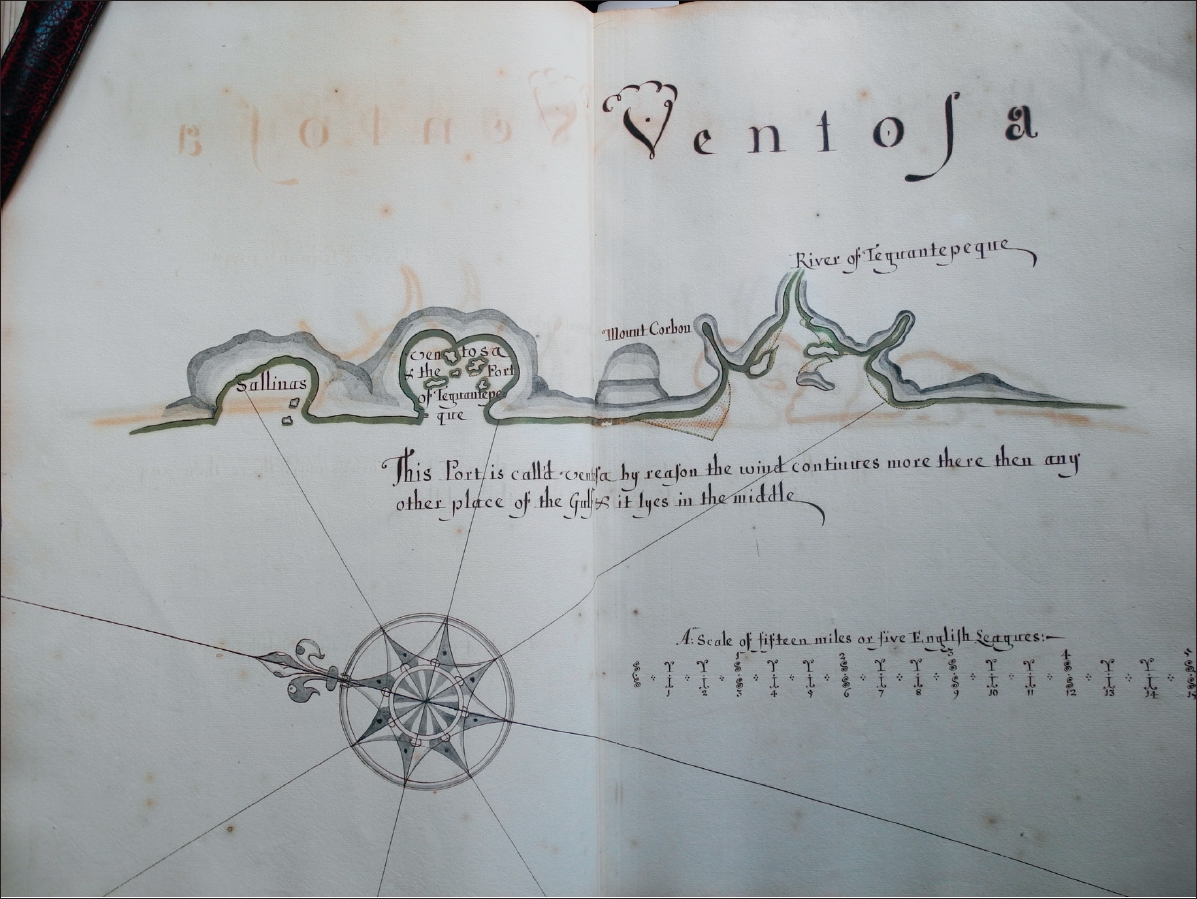 Ventoſa
River of Tequantepeque
Mount Corbou
Sallinas
ventosa
& the Port
of Tequantepe
que
This Port is call'd ventſa by reaſon the wind continues more there then any
other place of the Gulf & it lyes in the middle
A: Scale of fifteen miles or five Engliſh Leagues:
1 2 3 4 5
1 2 3 4 5 6 7 8 9 10 11 12 13 14 15